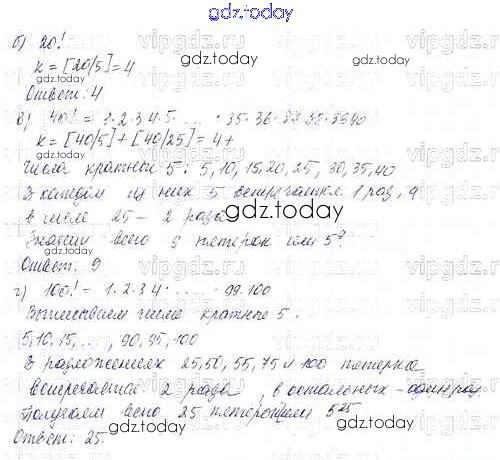 gdz.today
б) 20!
k = [20/5] = 4
Ответ: 4
в) 40! = 1·2·3 4·5· ..... ·35·36·37·38·39 40
k = [40/5] + [40/25] = 4+
Числа кратные 5: 5, 10, 15, 20, 25, 30, 35, 40
В каждом из них 5 встречается 1 раз, а
в числе 25 – 2 раза
gdz.today
Значит всего 9 пятерок или 5⁹
Ответ: 9
г) 100! – 1·2·3 4· ...... · 99·100
Выписываем числа кратные 5.
5, 10, 15, ....., 90, 95, 100
В разложениях 25, 50, 55, 75 и 100 пятерка
встречается 2 раза, в остальных – один раз
Получаем всего 25 пятерок или 5²⁵
Ответ: 25.
gdz.today